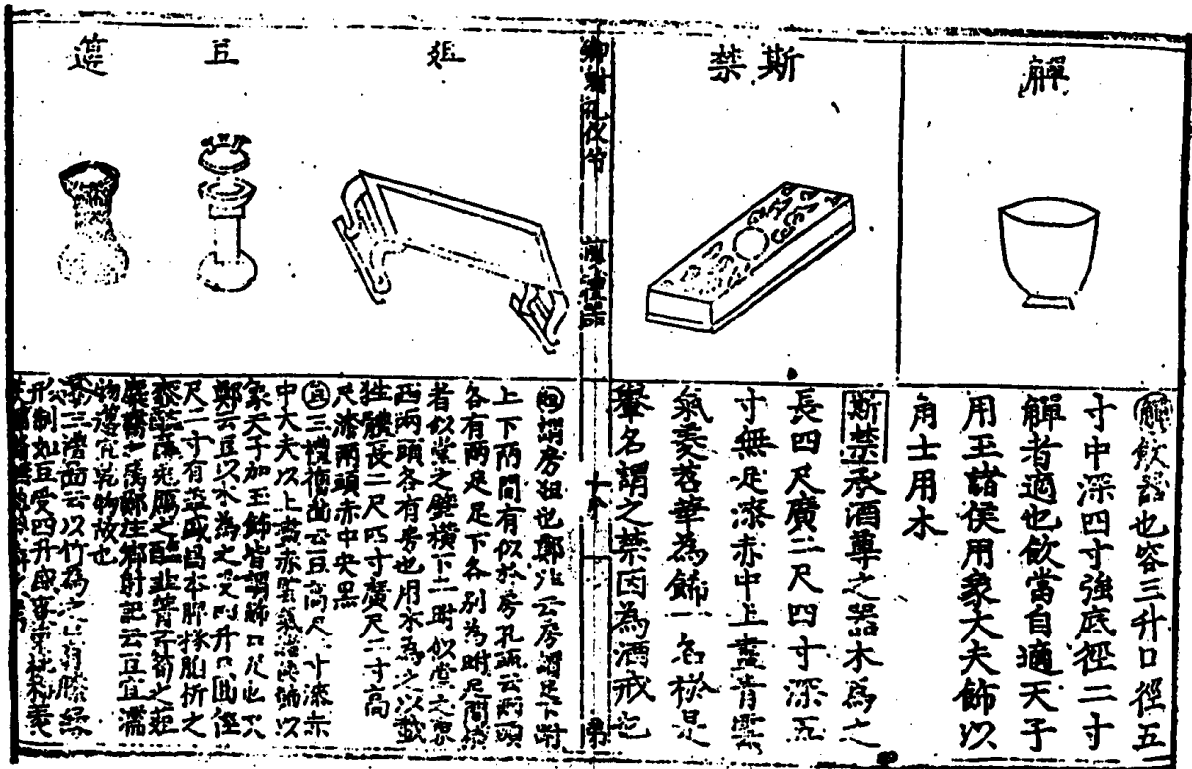 觶
斯禁
觶飲器也容三升口徑五
寸中深四寸強底徑二寸
觶者適也飲當自適天子
用玉諸侯用象大夫飾以
角士用木
斯禁承酒尊之器木為之
長四尺廣二尺四寸深五
寸無足漆赤中上畫青雲
氣菱苕華為飾一名棜是
舉名謂之禁因為酒戒也
鄉射礼仪节
俎
豆
籩
俎謂房俎也鄭注云房謂足下跗
上下兩間有似於房孔疏云兩頭
各有兩足足下各別為跗足間橫
者似堂之壁橫下二跗似堂之
西兩頭各有房也用木為之以載
牲體長二尺四寸廣尺二寸高
尺漆兩頭赤中央黑
豆三禮圖云豆高尺二寸漆赤
中大夫以上畫赤雲氣諸侯飾以
象天子加玉飾皆謂飾口足也
鄭云豆以木為之受四升口圓徑
尺二寸有蓋盛昌本脾析之
鄉射記云豆宜濡
物籩宜乾物故也
云以竹為之口有縢緣
形制如豆受四升盛